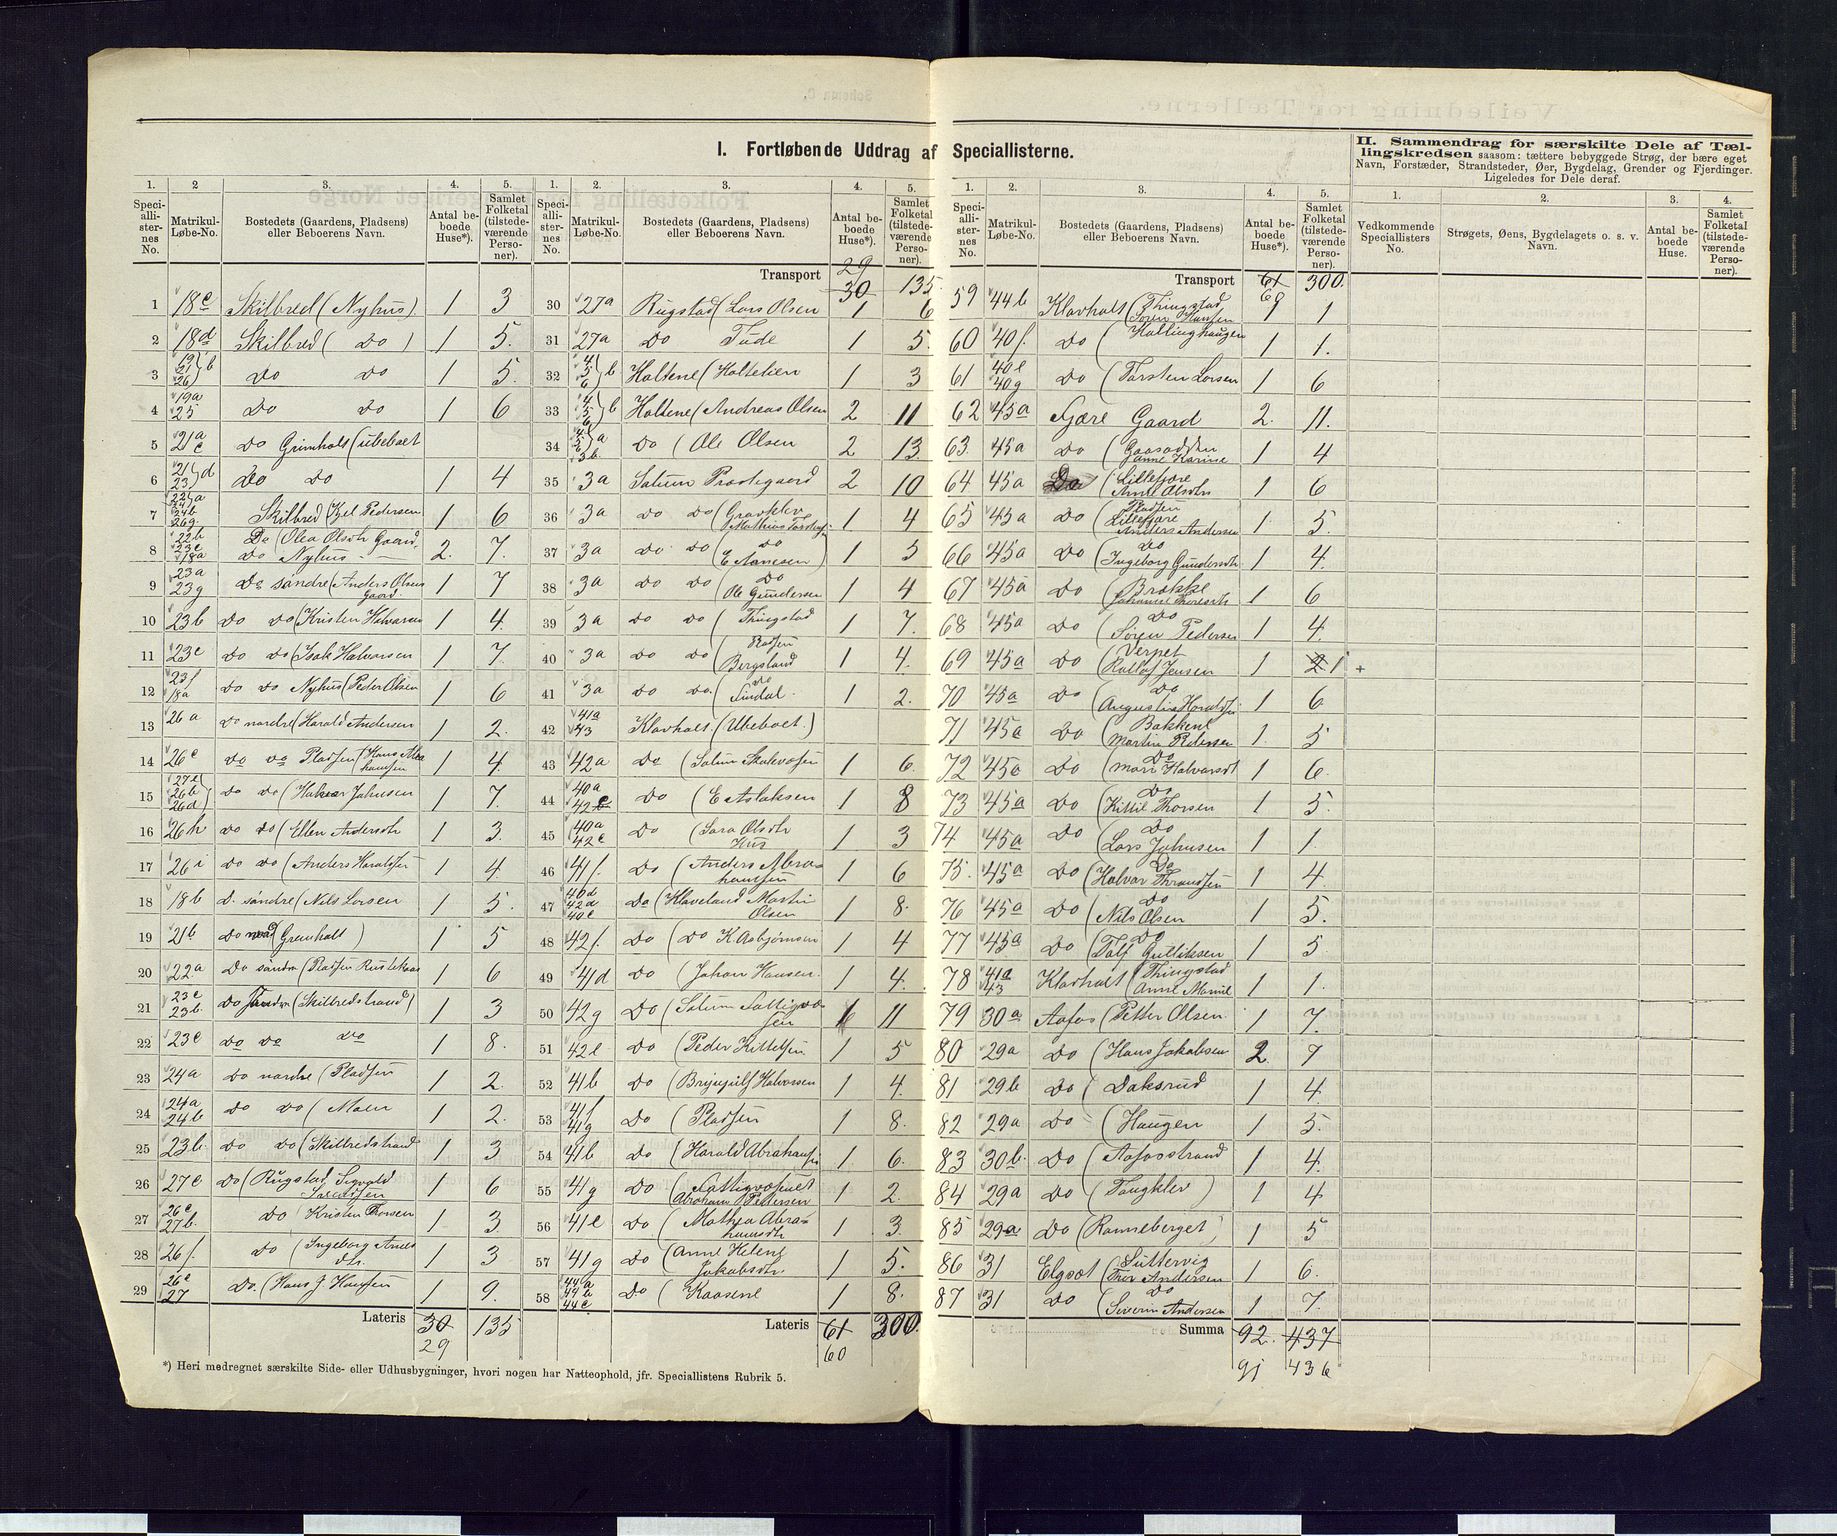 I. Fortløbende Uddrag af Speciallisterne.
II. Sammendrag for særskilte Dele af Tællingskredsen saasom: tættere bebyggede Strøg, der bære eget
Navn, Forstæder, Strandsteder, Øer, Bygdelag, Grender og Fjerdinger.
Ligeledes for Dele deraf.
1. 2 3. 4. 5.
Speciallisternes No. Matrikul-Løbe-No. Bostedets (Gaardens, Pladsens) eller Beboerens Navn. Antal beboede Huse*). Samlet Folketal (tilstedeværende Personer).
1 18c Skilbred (Nyhus) 1 3
2 18d Skilbred (Do) 1 5.
3 19 21 26 b Do Do 1 5.
4 19a 25 Do Do 1 6
5 21a c Do Grimholt (ubeboet
6 21 23 d Do Do 1 4
7 22a 24b 26g Skilbred (Kjel Pedersen 1 6
8 22b 23c 18a Do (Olea Olsdtr Gaard. Do Nyhus 2. 7.
9 23a 23g Do søndre (Anders Olsen Gaard 1 7
10 23b Do Do (Kristen Halvorsen 1 4.
11 23c Do Do (Isak Halvorsen 1 7.
12 23f 18a Do Do Nyhus (Peder Olsen 1 6
13 26a Do nordre (Harald Andersen 1 2.
14 26c Do Do Pladsen (Hans Abrahamsen 1 4.
15 26b 26d Do Do (Halvor Johnsen 1 7.
16 26h Do Do (Ellen Andersdtr 1 3.
17 26i Do Do (Anders Haraldsen 1 4
18 18b D. søndre (Nils Larsen 1 5.
19 21b Do (Gremholt) 1 5
20 22a Do søndre (Pladsen 1 6
21 23c 23b. Do søndre (Skilbredstrand) 1 3
22 23c Do Do Do 1 8.
23 24a Do nordre (Pladsen 1 2.
24 24a 24b Do Do (Moen 1 2.
25 23b. Do Do (Skilbredstrand 1 3
26 27c Do (Rugstad Sigvald 1 6
27 26c 27b. Do (Kristen Thorsen 1 3
28 26f. Do (Ingeborg 1 3
29 26c 27 Do. (Hans J Hansen 1 9.
Lateris 30 29 135
1. 2. 3. 4. 5.
Speciallisternes No. Matrikul-Løbe-No. Bostedets (Gaardens, Pladsens) eller Beboerens Navn. Antal beboede Huse*). Samlet Folketal (tilstedeværende Personer).
Transport 29 30 135
30 27a Rugstad (Lars Olsen 1 6
31 27a Do Tude 1 5.
32 4 5 6 b Holtene (Holteteien 1 3
33 4 5 6 b Holtene (Andreas Olsen 2 11
34 3b Do (Ole Olsen 2 13
35 3a Solum Prestegaard 2 10
36 3a Do Do (Gravklev 1 4
37 3a Do Do (Do E Aanesen) 1 5
38 3a Do Do (Do Ole Gundersen 1 4
39 3a Do Do (Thingstad 1 7.
40 3a Do Do (Pladsen Bergsland 1 4.
41 3a Do Do (Do Sindal. 1 2.
42 41a 43 Klovholt (Ubeboet)
43 42a Do (Solum 1 6.
44 40a 42 Do (E Aslaksen 1 8
45 40a 42c Do (Sara Olsdtr Hus 1 3
46 41f. Do (Anders Abrahamsen 1 6
47 40d 42d 40c Do (Klaveland Martin Olsen 1 8.
48 42f. Do (Do K Asbjørnsen 1 4
49 41d Do (Johan Hansen. 1 4.
50 42g Do 1 11
51 42e Do (Peder Kittelsen 1 5
52 41b Do (Halvorsen 1 4.
53 41f 41g Do (Pladsen 1 8.
54 41b Do (Harald Abrahamsen 1 6.
55 41g Do (Abraham Pedersen 1 2.
56 41e Do (Mathea Abrahamsdtr 1 3.
57 41g Do (Anne Helene Jakobsdtr 1 5.
58 44a 44c Do (Kaasene 1 8.
Lateris 61 60 300.
1. 2. 3. 4. 5.
Speciallisternes No. Matrikul-Løbe-No. Bostedets (Gaardens, Pladsens) eller Beboerens Navn. Antal beboede Huse*). Samlet Folketal (tilstedeværende Personer).
Transport 61 60 300.
59 44b Klovholt (Thingstad Søren Hansen 1 1
60 40f. Do (Hollinghaugen 1 1.
61 40e 40g Do (Torsten Larsen 1 6
62 45a Fjære Gaard 2. 11.
63. 45a Do (Anne Karine 1 4
64 45a Do (Lillefjære Anne Olsdtr 1 6
65 45a Do (Pladsen Lillefjære Anders Andersen 1. 5
66 45a Do (Do Ingeborg Gundersdtr 1 4.
67 45a Do (Brække 1 6
68 45a Do (Do Søren Pedersen 1 4.
69 45a Do (Verpet Jensen 1 2 1 +
70 45a Do (Do 1 6.
71 45a Do (Bakkene Martin Pedersen 1. 5
72 45a Do (Do Mari Halvorsdt 1 6.
73 45a Do (Do Kittil Thorsen 1 5.
74 45a Do (Do Lars Johnsen 1 1.
75. 45a Do (Do Halvor 1 4.
76 45a Do (Do Nils Olsen 1 5.
77 45a Do (Do Gulliksen 1 5
78 41a 43 Klovholt (Thingstad 1 1.
79 30a Aafos (Petter Olsen 1 7.
80 29a Do (Hans Jakobsen 2 7
81 29b Do (Daksrud 1 4.
82 29a Do (Haugen 1 5.
83 30b. Do (Aafosstrand 1 4.
84 29a Do (Tangklev) 1 4
85 29a Do (Ronneberget) 1 5
86 31 Elgvot (Luttervig Thor Andersen 1 6.
87 31 Do (Do Severin Andersen 1 7.
Summa 92. 437
91 436
1. 2. 3. 4.
Vedkommende Speciallisters No. Strøgets, Øens, Bygdelagets o. s. v. Navn. Antal beboede Huse. Samlet Folketal (tilstedeværende Personer).
*) Heri medregnet særskilte Side- eller Udhusbygninger, hvori nogen har Natteophold, jfr. Speciallistens Rubrik 5.